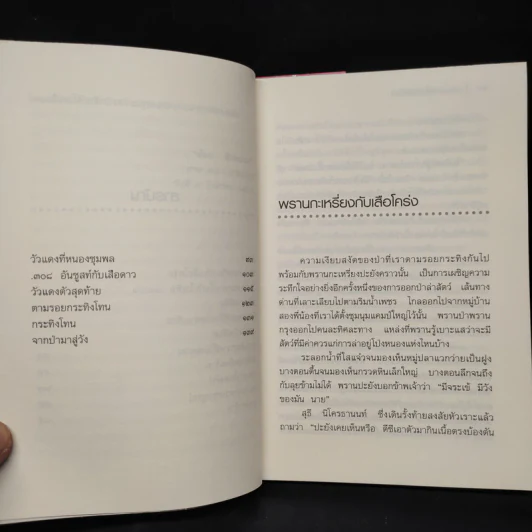 วัวแดงที่หนองชุมพล ๙๓
.๓๐๘ อันซูสท์กับเสือดาว ๑๐๓
วัวแดงตัวสุดท้าย ๑๑๕
ตามรอยกระทิงโทน
กระทิงโทน
จากป่ามาสู่วัง
พรานกะเหรี่ยงกับเสือโคร่ง
ความเงียบสงัดของป่าที่เราตามรอยกระทิงกันไป
พร้อมกับพรานกะเหรี่ยงปะยังคราวนั้น เป็นการเผชิญความ
ระทึกใจอย่างยิ่งอีกครั้งหนึ่งของการออกป่าล่าสัตว์ เส้นทาง
ด่านที่เลาะเลียบไปตามริมน้ำเพชร ไกลออกไปจากหมู่บ้าน
สองพี่น้องที่เราได้ตั้งชุมนุมแคมป์ใหญ่ไว้นั้น พรานป่าพราน
กรุงออกไปคนละทิศละทาง แหล่งที่พรานรู้เบาะแสว่าจะมี
สัตว์ที่มีค่าควรแก่การล่าอยู่โป่งหนองแห่งไหนบ้าง
ระลอกน้ำที่ใสแจ๋วจนมองเห็นหมู่ปลาแวกว่ายเป็นฝูง
บางตอนตื้นจนมองเห็นกรวดหินเล็กใหญ่ บางตอนลึกจนถึง
กับลุยข้ามไม่ได้ พรานปะยังบอกข้าพเจ้าว่า “มีจระเข้ มีวัง
ของมัน นาย”
สุธี นิโครธานนท์ ซึ่งเดินรั้งท้ายสงสัยหัวเราะแล้ว
ถามว่า “ปะยังเคยเห็นหรือ ดีซิเอาตัวมากินเนื้อตรงบ้องตัน